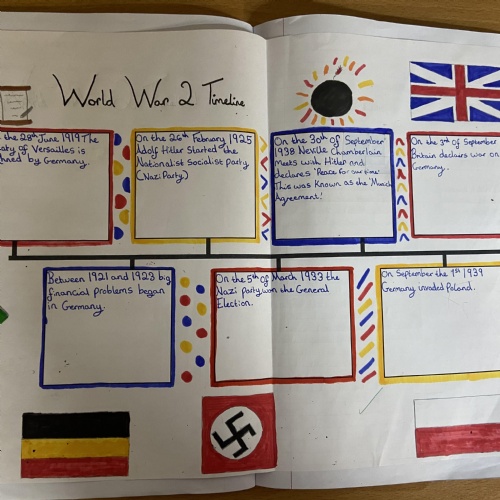 World War 2 Timeline
the 28th June 1919 The
aty of Versailles is
by Germany.
On the 26th February 1925
Adolf Hitler Started the
Nationalist Socialist Party
(Nazi Party)
On the 30th of September
1938 Neville Chamberlain
meets with Hitler and
declares 'Peace for our time'
This was known as the 'Munich
Agreement!
On the 3rd of September
Britain declars war on
Germany.
Between 1921 and 1923 big
financial problems began
in Germany.
On the 5th of March 1933 the
Nazi Party won the General
Election.
On September the 1st 1939
Germany invaded Poland.